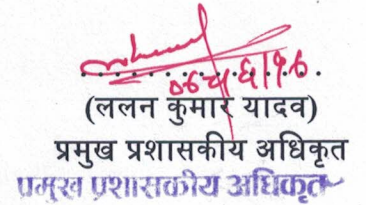 (ललन कुमार यादव)
प्रमुख प्रशासकीय अधिकृत
प्रमुख प्रशासकीय अधिकृत